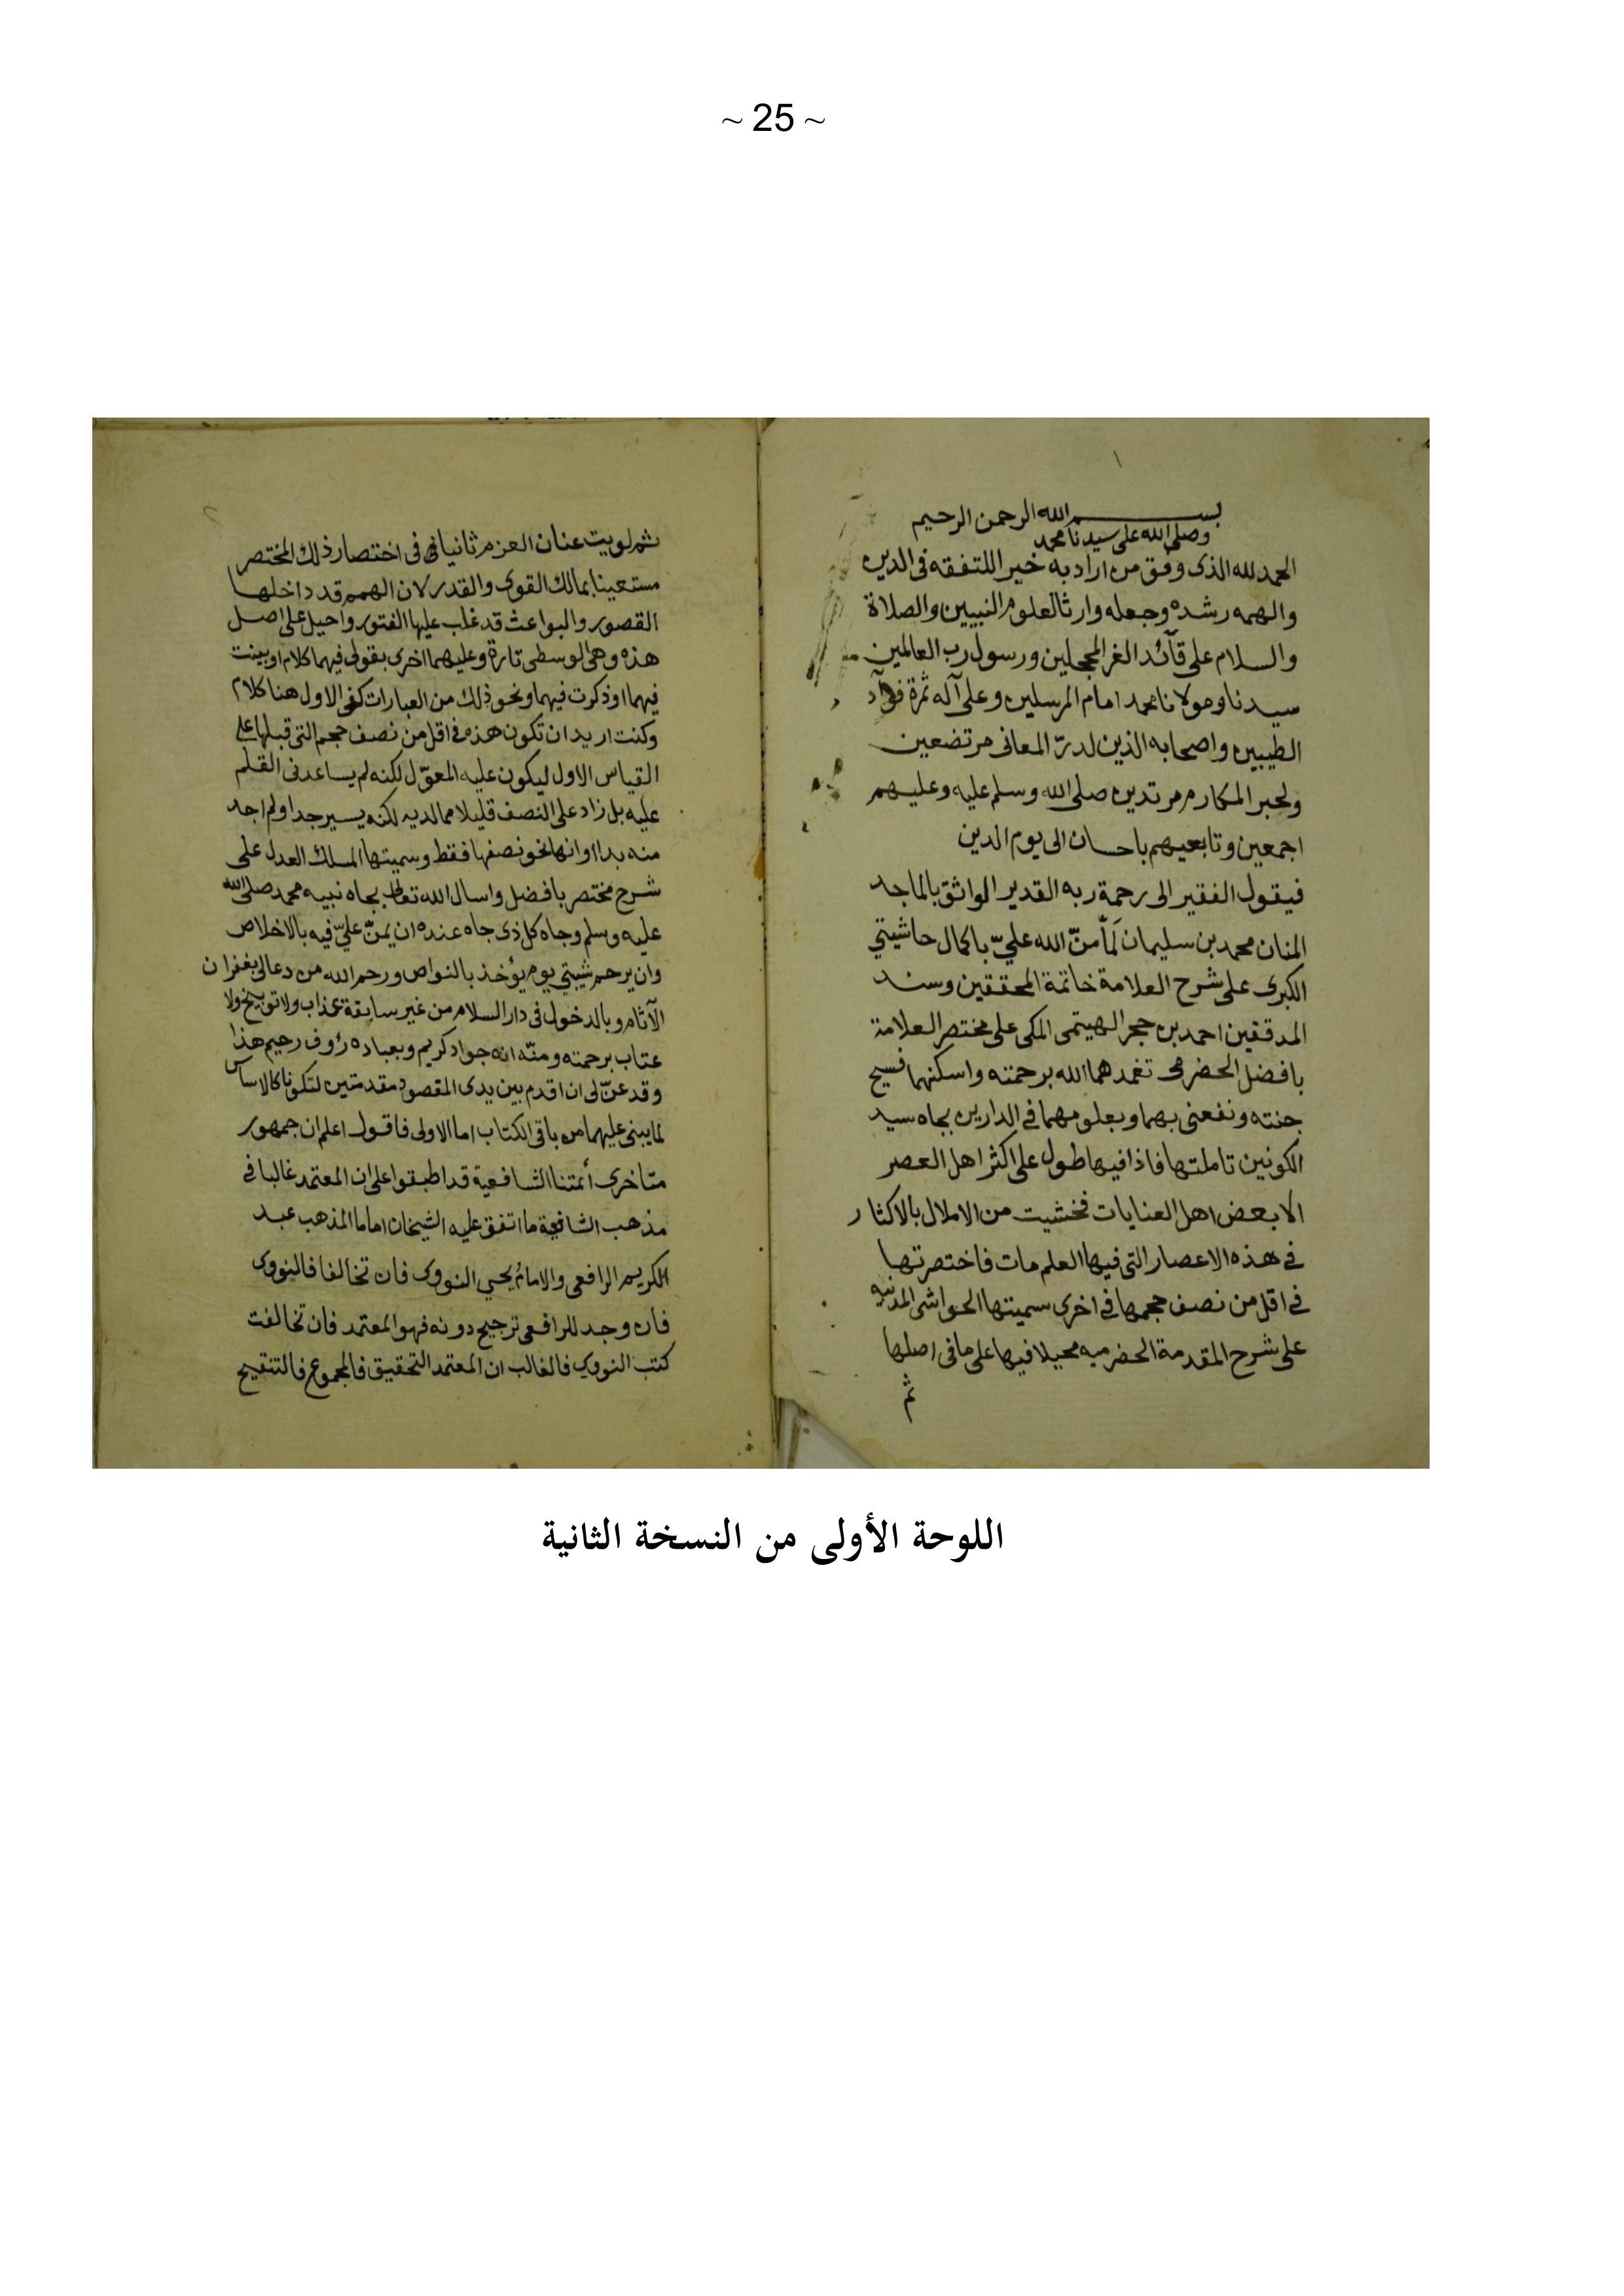 ~ 25 ~
بسم الله الرحمن الرحيم
وصلى الله على سيدنا محمد
الحمد لله الذى وفق من اراد به خيرا للتفقه فى الدين
والهمه رشده وجعله وارثا لعلوم النبيين والصلاة
والسلام على قآئد الغر المحجلين ورسول رب العالمين
سيدنا ومولانا محمد امام المرسلين وعلى آله ثمرة فوآد
الطيبين واصحابه الذين لدرّ المعانى مرتضعين
ولحبر المكارم مرتدين صلى الله وسلم عليه وعليهم
اجمعين وتابعيهم باحسان الى يوم الدين
فيقول الفقير الى رحمة ربه القدير الواثق بالماجد
المنان محمد بن سليمان لَمّا منّ الله عليّ باكمال حاشيتي
الكبرى على شرح العلامة خاتمة المحققين وسند
المدققين احمد بن حجر الهيتمى المكى على مختصر العلامة
بافضل الحضرمى تغمدهما الله برحمته واسكنهما فسيح
جنته ونفعنى بهما وبعلومهما فى الدارين بجاه سيد
الكونين تاملتها فاذا فيها طول على اكثر اهل العصر
الا بعض اهل العنايات فخشيت من الاملال بالاكثار
فى هذه الاعصار التى فيها العلم مات فاختصرتها
فى اقل من نصف حجمها فى اخرى سميتها الحواشى المدنيه
على شرح المقدمة الحضرميه محيلا فيها على ما فى اصلها
ثم
ثم لويت عنان العزم ثانيا فى اختصار ذلك المختصر
مستعينا بمالك القوى والقدر لان الهمم قد داخلها
القصور والبواعث قد غلب عليها الفتور واحيل على اصل
هذه وهى الوسطى تارة وعليهما اخرى بقولى فيهما كلام او بينت
فيهما او ذكرت فيهما ونحو ذلك من العبارات كفى الاول هنا كلام
وكنت اريد ان تكون هذه فى اقل من نصف حجم التى قبلها على
القياس الاول ليكون عليه المعوّل لكنه لم يساعدنى القلم
عليه بل زاد على النصف قليلا مما لديه لكنه يسير جدا ولم اجد
منه بدا وانها نحو نصفها فقط وسميتها المسلك العدل على
شرح مختصر بافضل واسال الله تعالى بجاه نبيه محمد صلى الله
عليه وسلم وجاه كل ذى جاه عنده ان يمنّ عليّ فيه بالاخلاص
وان يرحم شيبتي يوم يؤخذ بالنواص ورحم الله من دعا لى بغفران
الآثام وبالدخول فى دار السلام من غير سابقة عذاب ولا توبيخ ولا
عتاب برحمته ومنّه انه جواد كريم وبعباده رؤوف رحيم هذا
وقد عنّ لى ان اقدم بين يدى المقصود مقدمتين لتكونا كالاساس
لما يبنى عليهما من باقى الكتاب اما الاولى فاقول اعلم ان جمهور
متاخرى أئمتنا الشافعية قد اطبقوا على ان المعتمد غالبا فى
مذهب الشافعية ما اتفق عليه الشيخان اماما المذهب عبد
الكريم الرافعى والامام يحيي النووى فان تخالفا فالنووى
فان وجد للرافعى ترجيح دونه فهو المعتمد فان تخالفت
كتب النووى فالغالب ان المعتمد التحقيق فالمجموع فالتنقيح
اللوحة الأولى من النسخة الثانية